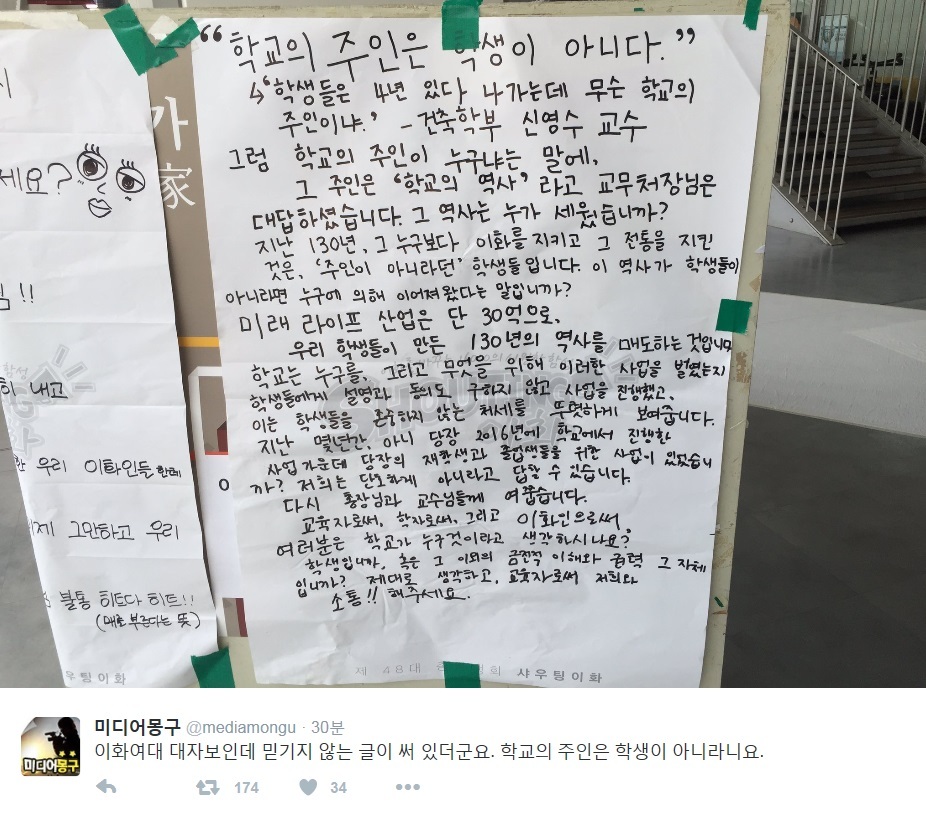 “학교의 주인은 학생이 아니다.”
↳‘학생들은 4년 있다 나가는데 무슨 학교의
주인이냐.’ - 건축학부 신영수 교수
그럼 학교의 주인이 누구냐는 말에,
그 주인은 ‘학교의 역사’ 라고 교무처장님은
대답하셨습니다. 그 역사는 누가 세웠습니까?
지난 130년, 그 누구보다 이화를 지키고 그 전통을 지킨
것은, ‘주인이 아니라던’ 학생들입니다. 이 역사가 학생들이
아니라면 누구에 의해 이어져 왔다는 말입니까?
미래 라이프 산업은 단 30억으로,
우리 학생들이 만든 130년의 역사를 매도하는 것입니다
학교는 누구를, 그리고 무엇을 위해 이러한 사업을 벌였는지
학생들에게 설명과 동의도 구하지 않고 사업을 진행했고,
이는 학생들을 존중하지 않는 처세를 뚜렷하게 보여줍니다.
지난 몇년간, 아니 당장 2016년에 학교에서 진행한
사업 가운데 당장의 재학생과 졸업생들을 위한 사업이 있었습니
까? 저희는 단호하게 아니라고 답할 수 있습니다.
다시 총장님과 교수님들께 여쭙습니다.
교육자로써, 학자로써, 그리고 이화인으로써,
여러분은 학교가 누구것이라고 생각하시나요?
학생입니까, 혹은 그 이외의 금전적 이해와 권력 그 자체
입니까? 제대로 생각하고, 교육자로써 저희와
소통!! 해주세요.
제 48대 총학생회 샤우팅이화
가
家
세요?
!!
하 내고
우리 이화인들 한레
그만하고 우리
불통 히트다 히트!!
(매로 부른다는 뜻)
우팅이화
미디어몽구 @mediamongu · 30분
이화여대 대자보인데 믿기지 않는 글이 써 있더군요. 학교의 주인은 학생이 아니라니요.
174 34
미디어몽구